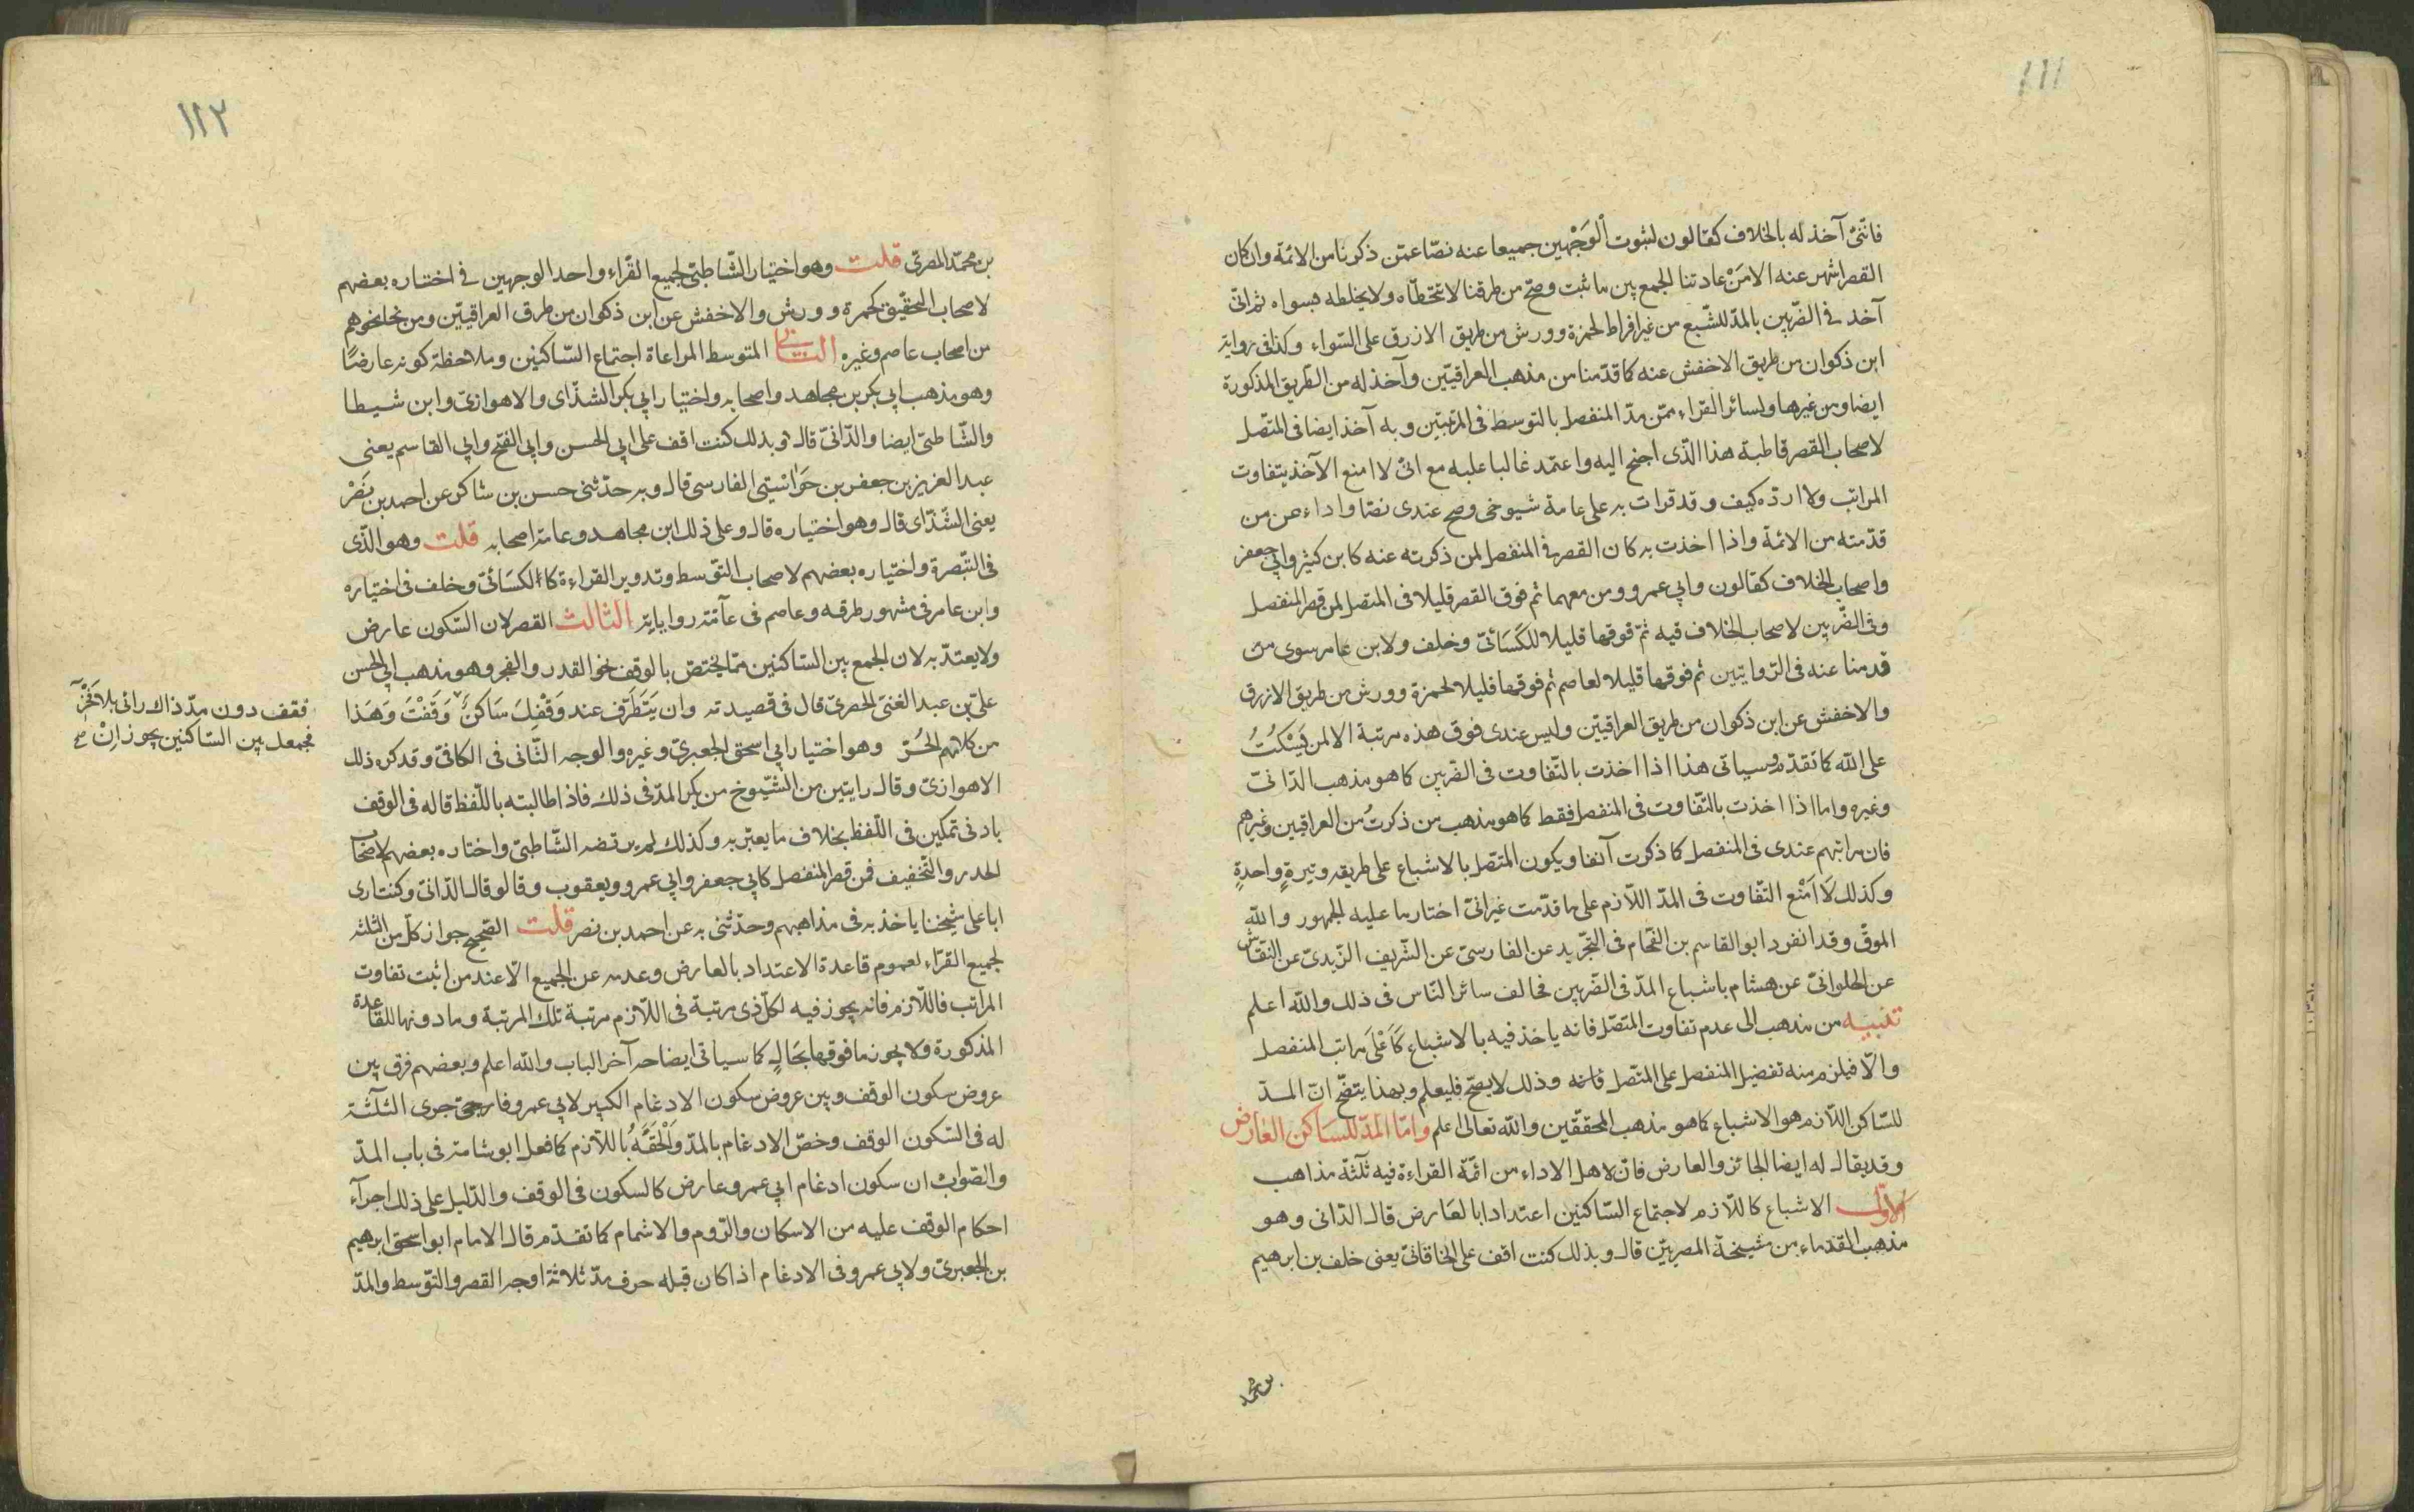 ١١١
فانني آخذ له بالخلاف كقالون لثبوت الوَجْهين جميعا عنه نصّا عمّن ذكرنا من الائمة وان كان
القصر اشهر عنه الا مَنْ عادتنا الجمع بين ما ثبت وصحّ من طرقنا لا نتخطّاه ولا نخلطه بسواه ثم انّى
آخذ في الضّربين بالمدّ المشبع من غير افراط لحمزة وورش من طريق الازرق على السّواء وكذا في رواية
ابن ذكوان من طريق الاخفش عنه كما قدّمنا من مذهب العراقيّين وآخذ له من الطّريق المذكورة
ايضا ومن غيرها ولسائر القراء ممّن مدّ المنفصل بالتوسط في المرتبتين وبه آخذ ايضا في المتّصل
لاصحاب القصر قاطبة هذا الذّى اجنح اليه واعتمد غالبا عليه مع انّى لا امنع الآخذ بتفاوت
المراتب ولا اردّه كيف وقد قرات به على عامة شيوخي وصح عندى نصّا واداء عن من
قدّمته من الائمة واذا اخذت به كان القصر في المنفصل لمن ذكرته عنه كابن كثير وابي جعفر
واصحاب الخلاف كقالون وابي عمرو ومن معهما ثم فوق القصر قليلا في المتصل لمن قصر المنفصل
وفي الضّربين لاصحاب الخلاف فيه ثمّ فوقها قليلا للكَسَائىّ وخلف ولابن عامر سوى من
قدمنا عنه في الرّوايتين ثم فوقها قليلا لعاصم ثم فوقها قليلا لحمزة وورش من طريق الازرق
والاخفش عن ابن ذكوان من طريق العراقيّين وليس عندى فوق هذه مرتبة الا لمن يَسْكُتُ
على اللّه كما تقدّم وسياتى هذا اذا اخذت بالتّفاوت في الضّربين كما هو مذهب الدّانىّ
وغيره واما اذا اخذت بالتّفاوت في المنفصل فقط كما هو مذهب من ذكرتُ من العراقيين وغيرهم
فان مراتبهم عندى في المنفصل كما ذكرت آنفا ويكون المتّصل بالاشباع على طريقه وتيرةٍ واحدةٍ
وكذلك لَا اَمْنع التّفاوت في المدّ اللّازم على ما قدّمت غير انّى اختار ما عليه الجمهور واللّه
الموفّق وقد انفرد ابو القاسم بن الفحّام في التّجريد عن الفارسىّ عن الشّريف الزّيدىّ عن النقّاش
عن الحلوانىّ عن هشام باشباع المدّ في الضّربين فخالف سائر النّاس في ذلك واللّه اعلم
تنبيه من مذهب الى عدم تفاوت المتّصل فانه ياخذ فيه بالاشباع كاَعْلَى مراتب المنفصل
والّا فيلزم منه تفضيل المنفصل على المتّصل فانه وذلك لا يصحّ فليعلم وبهذا يتضّح انّ المدّ
للسّاكن اللّازم هو الاشباع كما هو مذهب المحققّين واللّه تعالى اعلم وامّا المدّ للسَاكن العَارض
وقد يقال له ايضا الجائز والعارض فانّ لاهل الاداء من ائمّة القراءة فيه ثلٰثة مذاهب
الاوّل الاشباع كاللّازم لاجتماع السّاكنين اعتدادا بالعَارض قال الدّانى وهو
مذهب القدماء من مشيخة المصريّين قال وبذلك كنت اقف على الخاقانىّ يعنى خلف بن ابرهيم
بن محمد
١١٢
بن محمّد المصرى قلت وهو اختيار الشّاطبىّ لجميع القّراء واحد الوجهين في اختاره بعضهم
لاصحاب التّحقيق كحمزة وورش والاخفش عن ابن ذكوان من طرق العراقيّين ومن نحا نحوهم
من اصحاب عاصم وغيره الثانى المتوسط المراعاة اجتماع السّاكنين وملاحظة كونه عارضًا
وهو مذهب ابي بكر بن مجاهد واصحابه واختيار ابي بكر الشذّاى والاهوازىّ وابن شيطا
والشّاطبىّ ايضا والدّانىّ قال وبذلك كنت اقف على ابي الحسن وابي الفتح وابي القاسم يعنى
عبد العزيز بن جعفر بن خَوَاسْتى الفارسى قال وبه حدّثنى حسن بن شاكر عن احمد بن نَصْر
يعنى الشَّذّاى قال وهو اختياره قال وعلى ذلك ابن مجاهد وعامّة اصحابه قلت وهو الذّى
في التّبصرة واختياره بعضهم لاصحاب التوّسط وتدوير القراءة كالكسَائىّ وخلف في اختياره
وابن عامر في مشهور طرقه وعاصم في عآمّة رواياته الثالث القصر لان السّكون عارض
ولا يعتدّ به لان الجمع بين السّاكنين ممّا يختصّ بالوقف نحو القدر والفجر وهو مذهب ابي الحسن
علىّ بن عبد الغنىّ الحصرىّ قال في قصيدته وان يَتَطَرّف عند وَقْفِكَ سَاكنٌ وَقَفْتَ وَهَذَا
من كلامهم الحُرّ وهو اختيار ابي اسحق الجعبرىّ وغيره والوجه الثّانى في الكافىّ وقد كره ذلك
الاهوازىّ وقال رايتين من الشيّوخ من يكره المدّ في ذلك فاذا طالبته باللّفظ قاله في الوقف
بادنى تمكين في اللّفظ بخلاف ما يعبّر به وكذلك لم يرتضه الشّاطبىّ واختاره بعضهم لاصحاب
الحدر والتّخفيف فمن قصر المنفصل كابي جعفر وابي عمرو ويعقوب وقالو قال الدّانىّ وكنت ارى
ابا على شيخنا ياخذ به في مذاهبهم وحدّثنى به عن احمد بن نصر قلت الصّحيح جواز كلّ من الثلثة
لجميع القرّاء لعموم قاعدة الاعتداد بالعارض وعدمه عن الجميع الّا عند من اثبت تفاوت
المراتب فاللّازم فانه يجوز فيه لكلّ ذى مرتبة في اللّازم مرتبة تلك المرتبة وما دونها للقاعدة
المذكورة ولا يجوز ما فوقها بحَالٍ كما سياتى ايضاحه آخر الباب واللّه اعلم وبعضهم فرق بين
عروض سكون الوقف وبين عروض سكون الادغام الكبير لابي عمرو فاجرى الثلٰثة
له في السّكون الوقف وخصّ الادغام بالمدّ وَاَلْحَقَهُ باللّازم كما فعل ابو شامة في باب المدّ
والصّواب ان سكون ادغام ابي عمرو عارض كالسكون في الوقف والدّليل على ذلك اجرآء
احكام الوقف عليه من الاسكان والرّوم والاشمام كما تقدّم قال الامام ابو اسحق ابرهيم
بن الجعبرىّ ولابي عمرو في الادغام اذا كان قبله حرف مدّ ثلاثة اوجه القصر والتوّسط والمدّ
فقف دون مدّ ذاك رائى بلا فَخْرٍ
فجمعك بين السّاكنين يجوز انْ صح